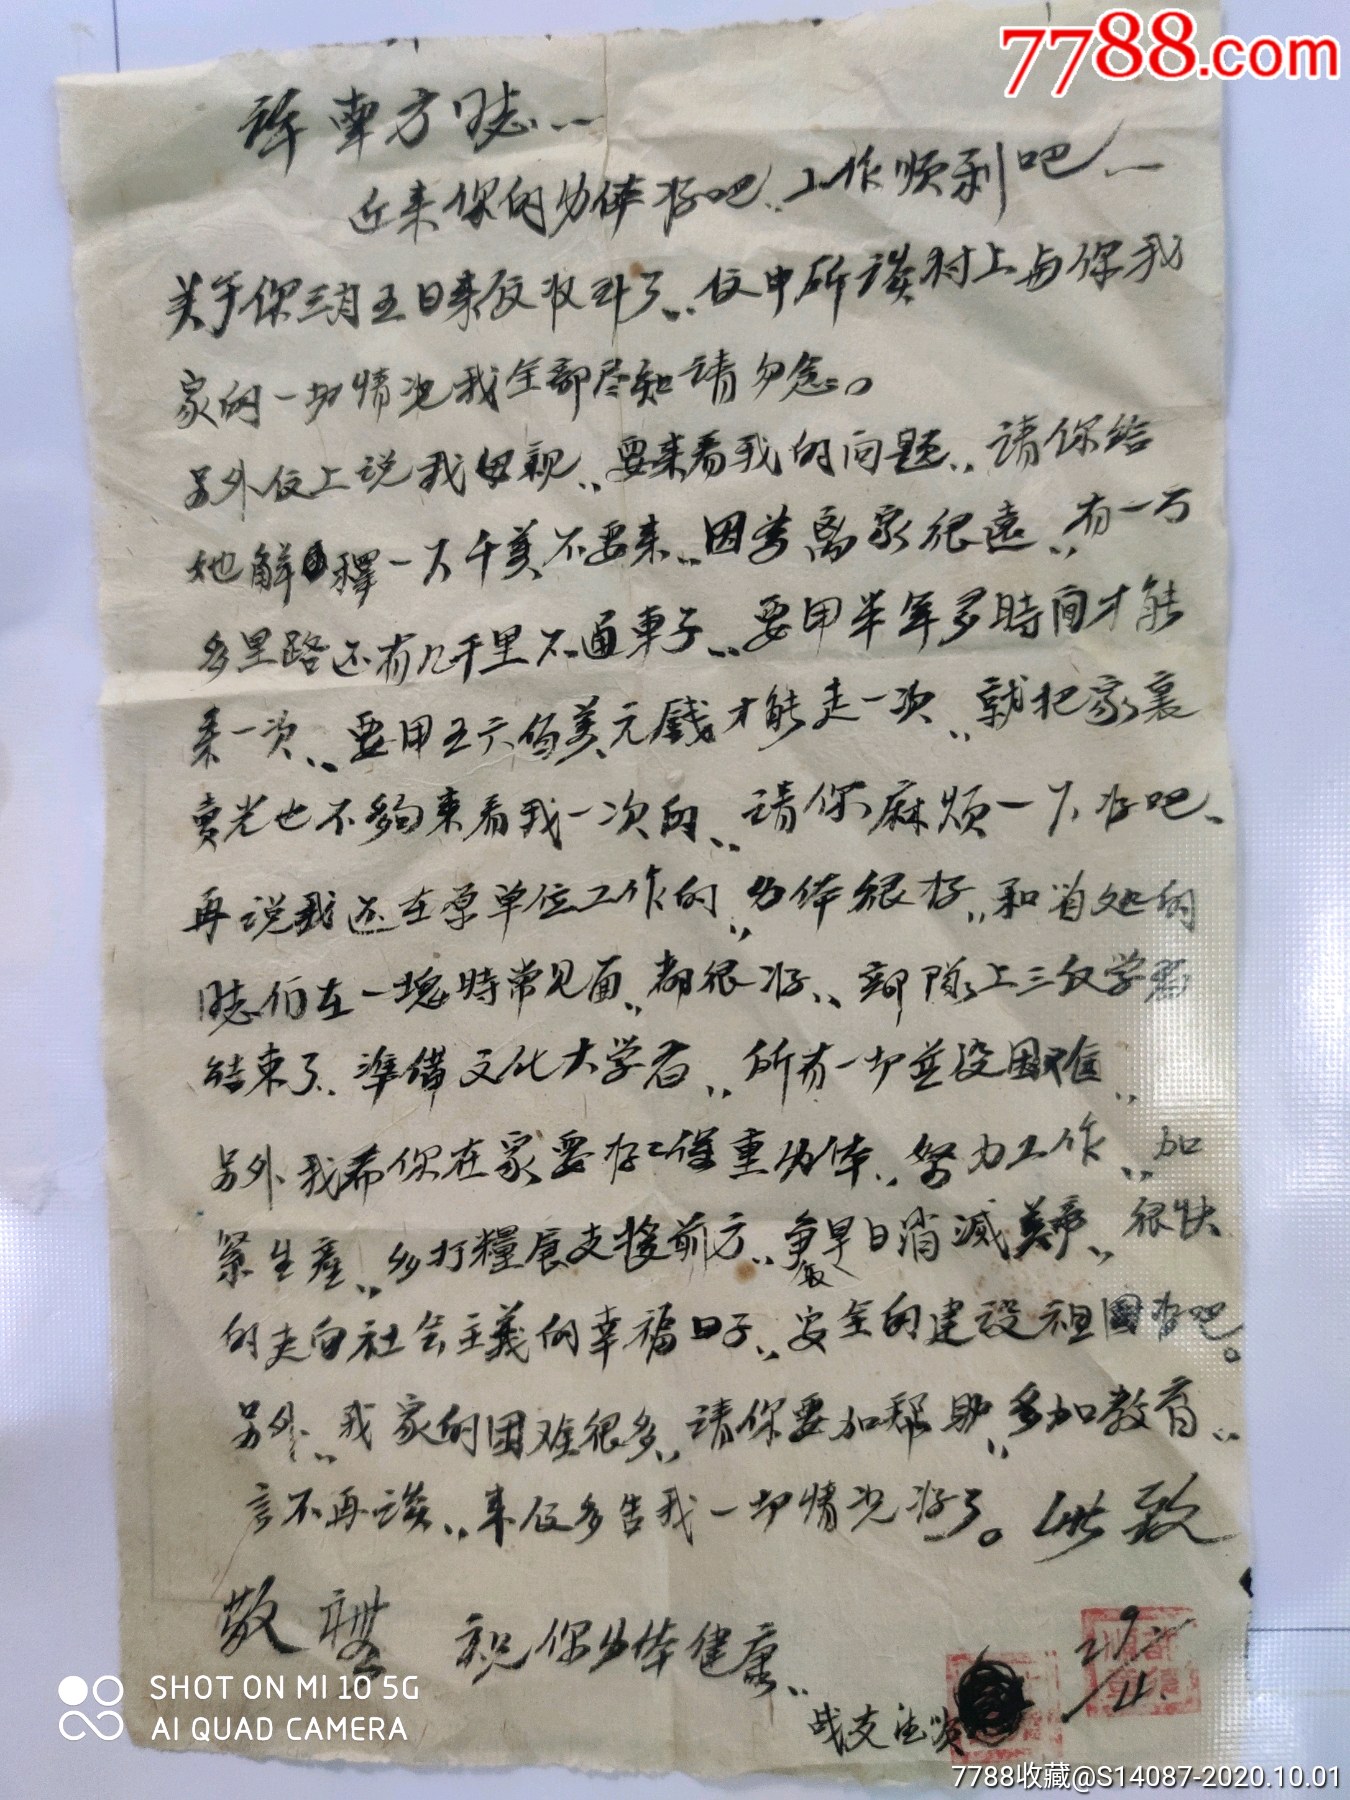 7788.com
许南方同志、、
近来你的身体好吧、、工作顺利吧、、
关于你三月五日来信收到了、、信中所谈村上与你我
家的一切情况我全部尽知请勿念。
另外信上说我母亲、、要来看我的问题、、请你给
她解释一下千万不要来、、因为离家很遠、、有一万
多里路还有几千里不通車子、、要用半年多時间才能
来一次、、要用五六百美元钱才能走一次、、就把家裏
卖光也不夠来看我一次的、、请你麻烦一下好吧、
再说我还在原单位工作的、、身体很好、、和省处的
同志们在一塊時常见面、、都很好、、部隊上三反学习
结束了、準备文化大学习、、所有一切並没困难、、
另外我希你在家要好好保重身体、、努力工作、、加
紧生産、、多打糧食支援前方、、争取早日消滅美帝、、很快
的走向社会主義的幸福日子、、安全的建设祖国好吧。
另外、、我家的困难很多、、请你要加帮助、、多加教育、、
言不再谈、、来信多告我一切情况好了。此致
敬礼 祝你身体健康、、
SHOT ON MI 10 5G
AI QUAD CAMERA
7788收藏@S14087-2020.10.01